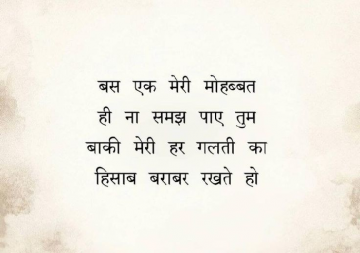 बस एक मेरी मोहब्बत
ही ना समझ पाए तुम
बाकी मेरी हर गलती का
हिसाब बराबर रखते हो